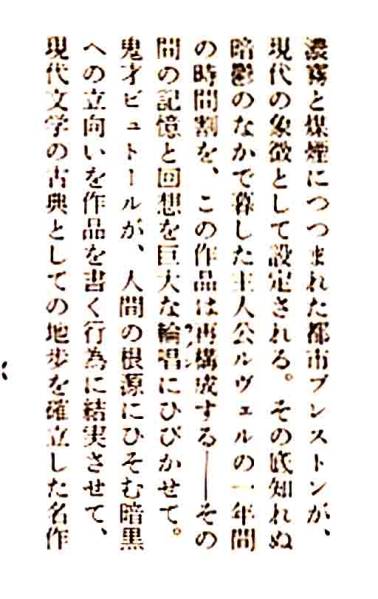 濃霧と煤煙につつまれた都市ブレストンが、
現代の象徴として設定される。その底知れぬ
暗影のなかで暮した主人公ルヴェルの一年間
の時間割を、この作品は再構成する――その
間の記憶と回想を巨大な輪唱にひびかせて。
鬼才ビュトールが、人間の根源にひそむ暗黒
への立向いを作品を書く行為に結実させて、
現代文学の古典としての地歩を確立した名作